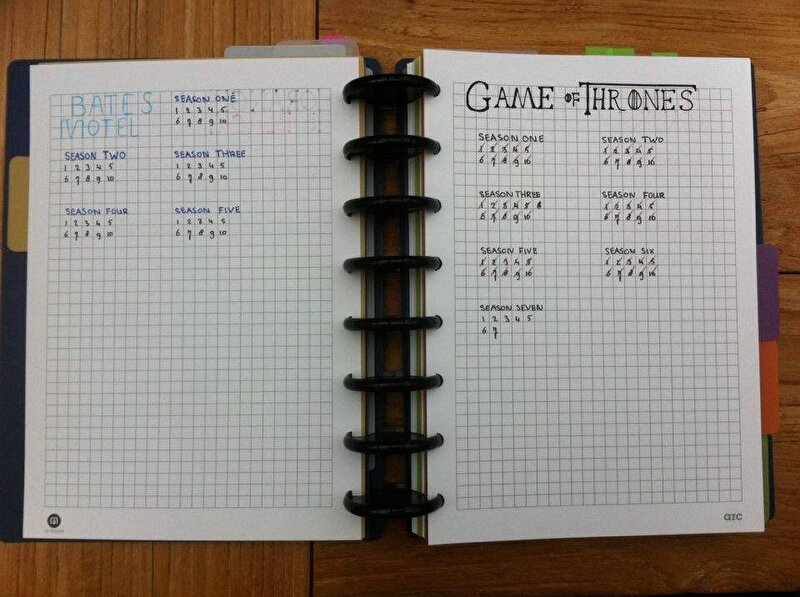 BATES
MOTEL
SEASON ONE
1 2 3 4 5
6 7 8 9 10
SEASON TWO
1 2 3 4 5
6 7 8 9 10
SEASON THREE
1 2 3 4 5
6 7 8 9 10
SEASON FOUR
1 2 3 4 5
6 7 8 9 10
SEASON FIVE
1 2 3 4 5
6 7 8 9 10
GAME OF THRONES
SEASON ONE
1 2 3 4 5
6 7 8 9 10
SEASON TWO
1 2 3 4 5
6 7 8 9 10
SEASON THREE
1 2 3 4 5 8
6 7 8 9 10
SEASON FOUR
1 2 3 4 5
6 7 8 9 10
SEASON FIVE
1 2 3 4 5
6 7 8 9 10
SEASON SIX
1 2 3 4 5
6 7 8 9 10
SEASON SEVEN
1 2 3 4 5
6 7
arc